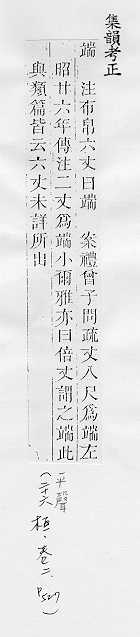 集韻考正
端　注布帛六丈曰端　案禮曾子問疏丈八尺爲端左
昭廿六年傳注二丈爲端小爾雅亦曰倍丈謂之端此
與類篇皆云六丈未詳所出
平聲
(二十六桓·卷二 P527)